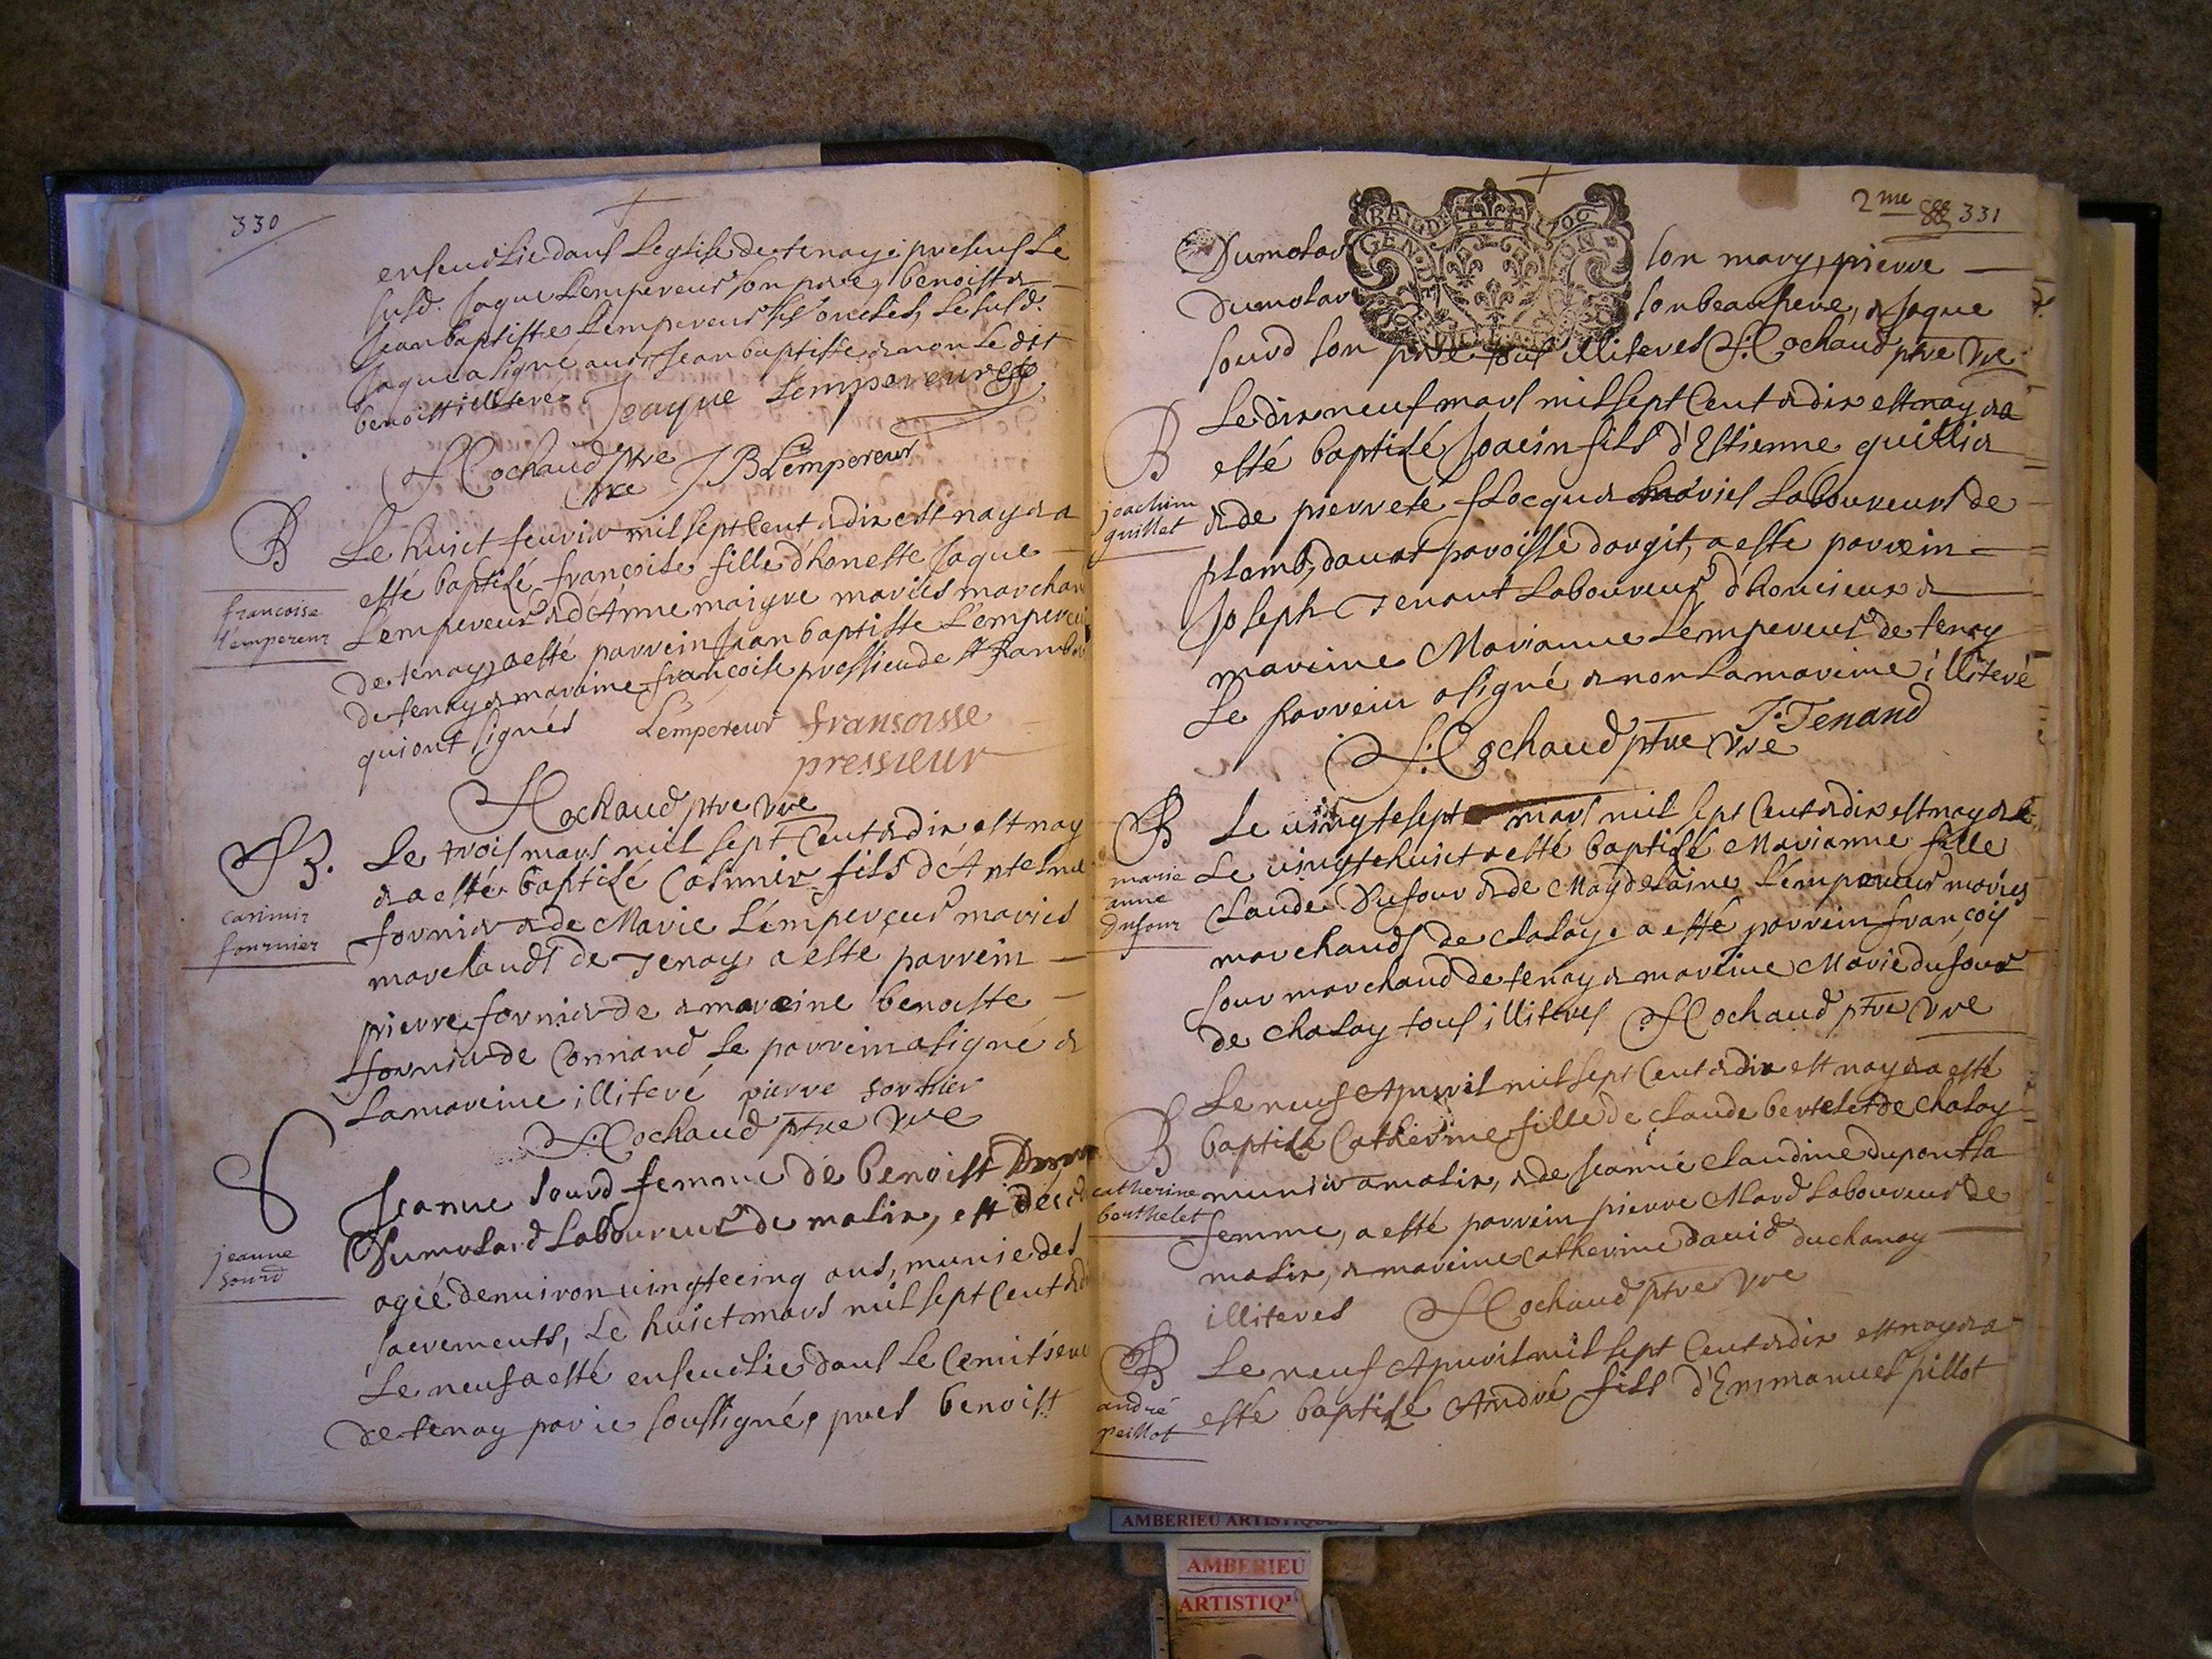 330
ensevelie dans Leglise de tenay: presens Le
susd. Jaque Lempereur son pere, benoist &
Jean baptiste Lempereur ses oncles, Le susd.
Jaque a signé aussi Jean baptiste & non Le dit
benoist illiteré Jeaque Lempereur
J Cochaud ptre
vre J B Lempereur
B
francoise
lempereur
Le huict feuvier mil sept Cent & dix est nay & a
esté baptisé françoise fille d'honeste Jaque
Lempereur & d'Anne maigre mariés marchan
de tenay, a esté parrein Jean baptiste L'empereu
de tenay & maraine françoise pressieu de st Ramber
qui ont signés Lempereur fransoisse
pressieur
J Cochaud ptre vre
B.
casimir
fournier
Le trois mars mil sept Cent & dix est nay
& a esté baptisé Casimir fils d'Antelme
fornier & de Marie L'empereur mariés
marchands de Tenay a este parrein
pierre fornier de & maraine benoiste
fornier de Connand Le parrein a signé &
La mareine illiteré pierre fornier
J. Cochaud ptre vre
S
jeanne
sourd
Jeanne Sourd femme de benoist
Dumolard Laboureur de malix, est deced
agiée denviron vingtecinq ans, munie des
sacrements, Le huict mars mil sept Cent &
Le neuf a esté ensevelie dans Le Cemitiere
de tenay par ie soussigné, pres benoist
2me 331
GEN
Dumolar son mary, pierre
Dumolar son beaupere, & Jaque
sourd son pere tous illiteres J. Cochaud ptre vre
B
joachim
guillet
Le dix neuf mars mil sept Cent & dix est nay & a
esté baptisé Joacin fils d'Estienne guillier
& de pierrete flocquer mariés Laboureurs de
plomb, davat paroisse dargit, a este parrein
Joseph Tenant Laboureur d'honcieux &
mareine Marianne Lempereur de tenay
Le parrein a signé & non La mareine illiteré
J. Cochaud ptre vre J. Tenand
B
marie
anne
dufour
Le vingtesept mars mil sept Cent & dix est nay & le
Le vingtehuict a esté baptisé Marianne fille
Claude Dufour & de Magdelaine L'empereur mariés
marchands de chaley a esté parrein françois
sour marchand de tenay & mareine Marie dufour
de chalay tous illiteres J Cochaud ptre vre
B
catherine
berthelet
Le neuf Apuril mil sept Cent & dix est nay & a esté
baptisé Catherine fille de Claude bertelet de chalay
munier a malix, & de Jeanne Claudine dupont sa
femme, a esté parrein pierre Alard Laboureur de
malix, & mareine Catherine david du chanay
illiteres J Cochaud ptre vre
B
andré
peillot
Le neuf Apuril mil sept Cent & dix est nay & a
esté baptisé André fils d'Emmanuel pillot
AMBERIEU ARTISTIQUE
AMBERIEU
ARTISTIQ'